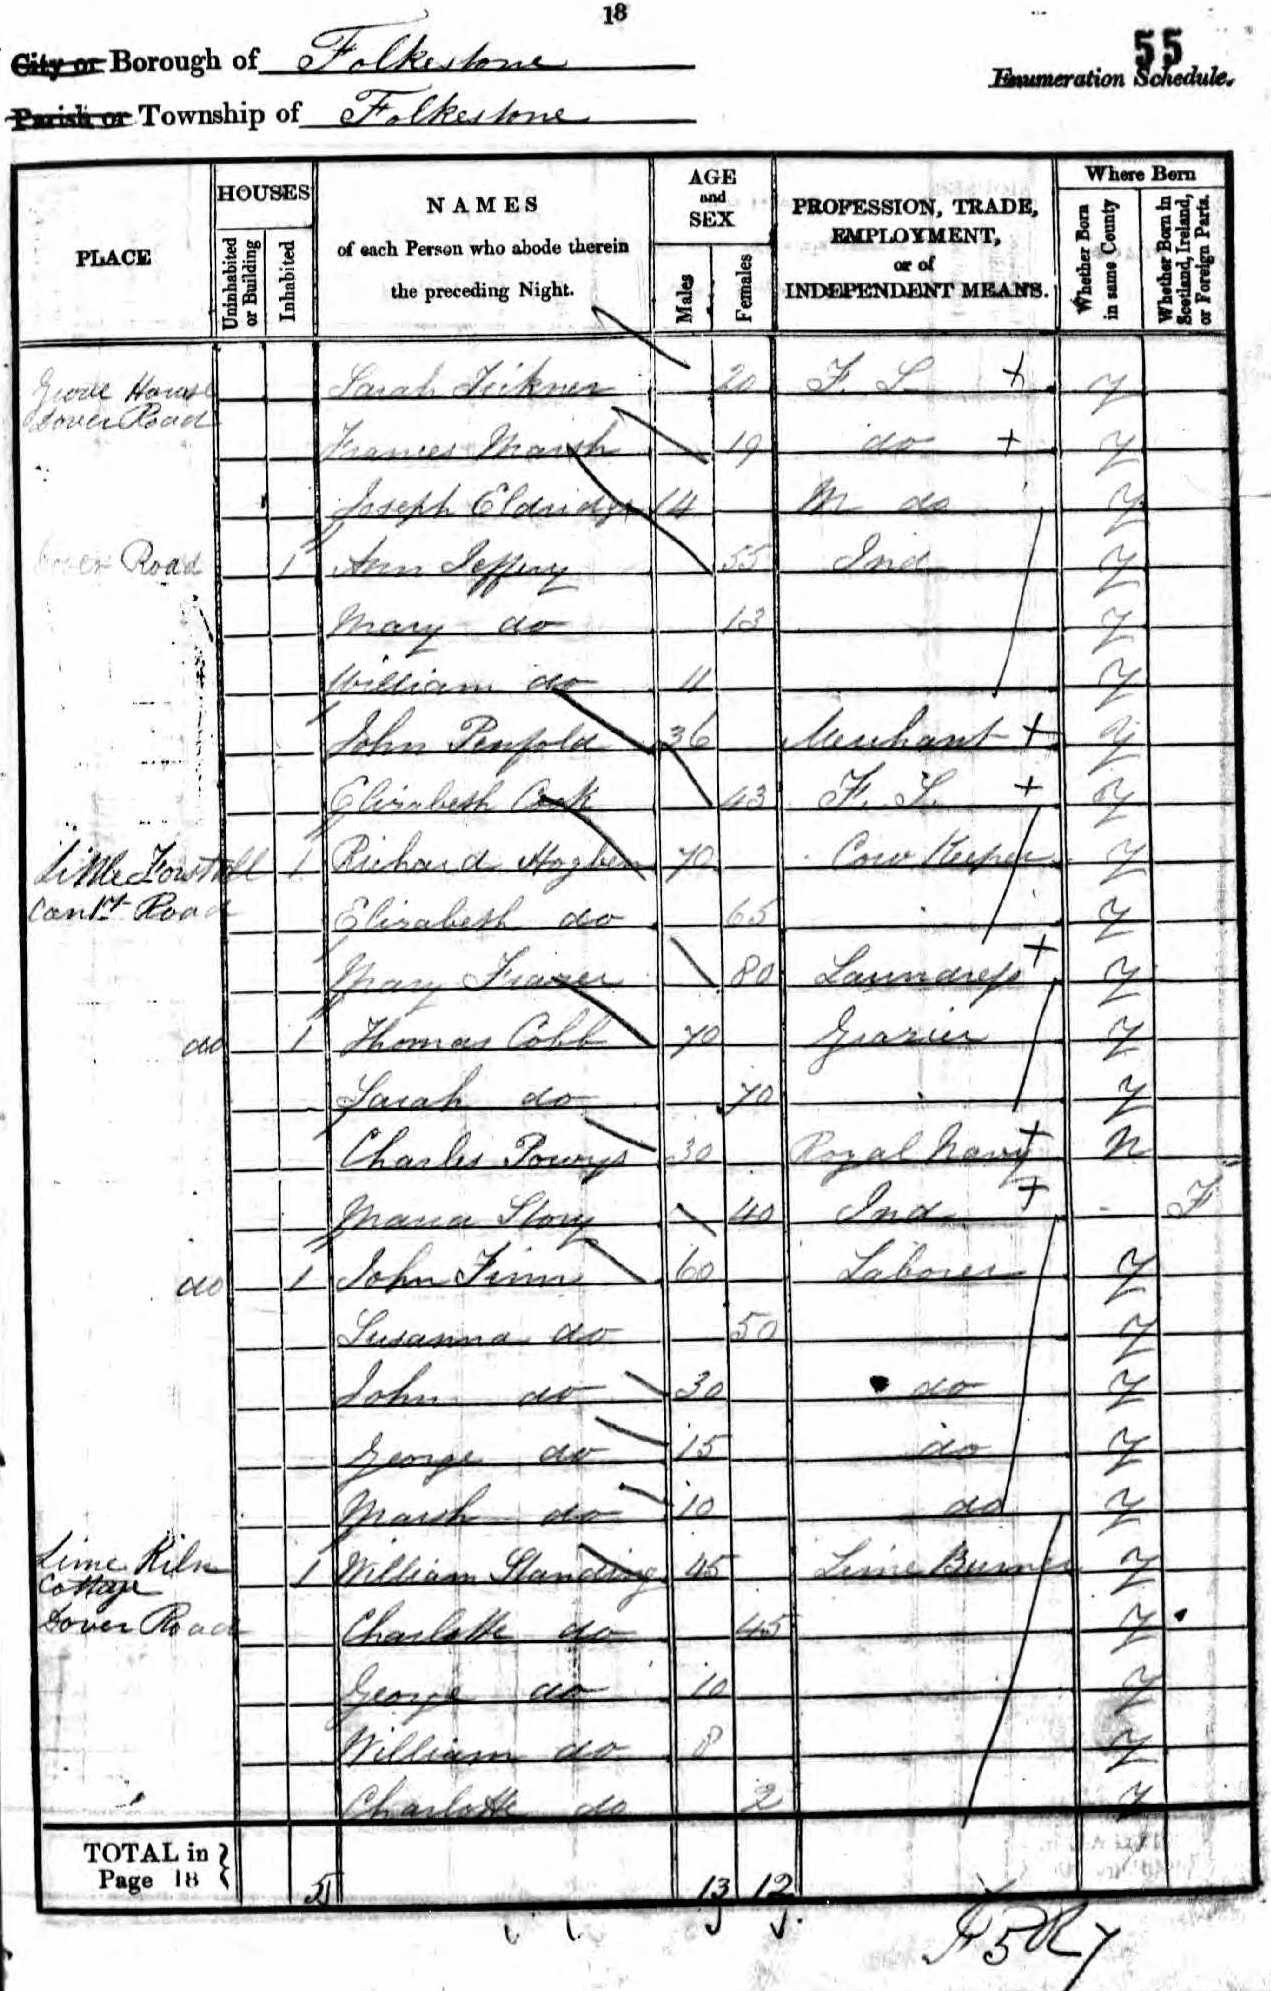 18
55
City or Borough of Folkestone
Enumeration Schedule.
Parish or Township of Folkestone
PLACE
HOUSES
Uninhabited or Building
Inhabited
NAMES
of each Person who abode therein
the preceding Night.
AGE
and
SEX
Males
Females
PROFESSION, TRADE,
EMPLOYMENT,
or of
INDEPENDENT MEANS.
Where Born
Whether Born in same County
Whether Born in Scotland, Ireland, or Foreign Parts.
Grove House Sarah Tickner 20 F. S. + Y
Dover Road
Frances Marsh 19 do + Y
Joseph Eldridge 14 M do Y
Dover Road 1 Ann Jeffery 55 Ind Y
Mary do 13 Y
William do 11 Y
John Penfold 36 Merchant + Y
Elizabeth Cook 43 F. S. + Y
Little Forstall 1 Richard Hogben 70 Cow Keeper Y
Cant Road Elizabeth do 65 Y
Mary Frazer 80 Laundress + Y
do 1 Thomas Cobb 70 Grazier Y
Sarah do 70 Y
Charles Powys 30 Royal Navy + N
Maria Story 40 Ind + - F
do 1 John Finn 60 Laborer Y
Susanna do 50 Y
John do 30 do Y
George do 15 do Y
Marsh do 10 do Y
Lime Kiln 1 William Standing 45 Lime Burner Y
Cottage
Dover Road Charlotte do 45 Y
George do 10 Y
William do 8 Y
Charlotte do 2 Y
TOTAL in
Page 18 5 13 12